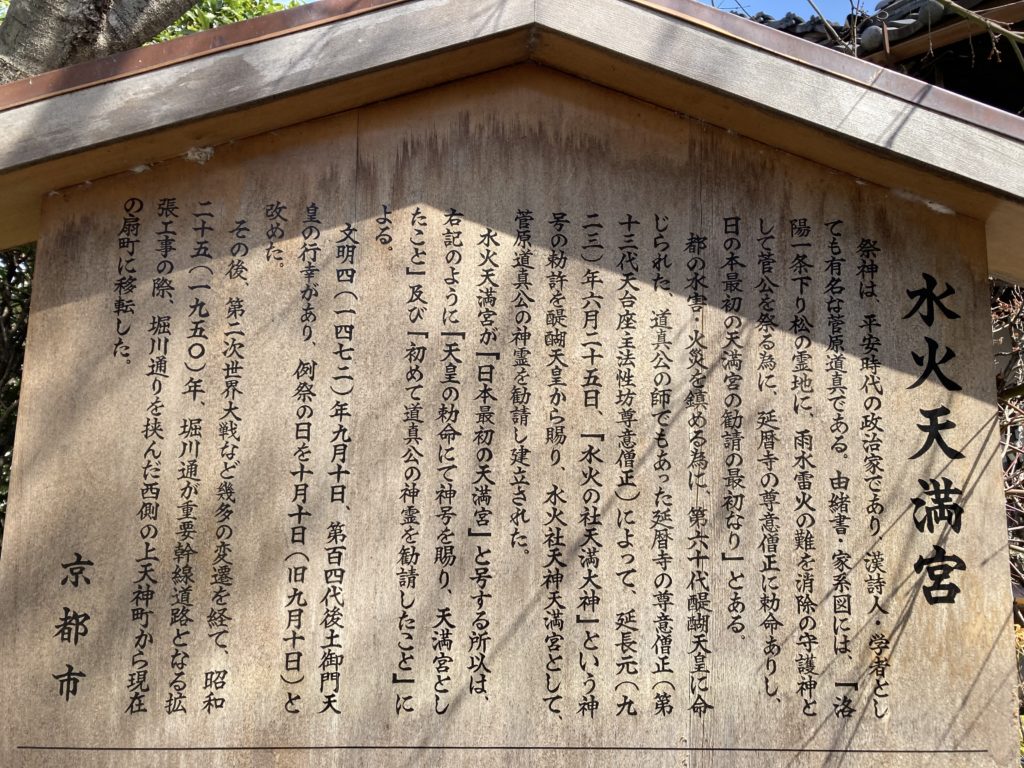 水火天満宮
祭神は、平安時代の政治家であり、漢詩人・学者とし
ても有名な菅原道真である。由緒書・家系図には、「洛
陽一条下り松の霊地に、雨水雷火の難を消除の守護神と
して菅公を祭る為に、延暦寺の尊意僧正に勅命ありし、
日の本最初の天満宮の勧請の最初なり」とある。
都の水害・火災を鎮める為に、第六十代醍醐天皇に命
じられた、道真公の師でもあった延暦寺の尊意僧正(第
十三代天台座主法性坊尊意僧正)によって、延長元(九
二三)年六月二十五日、「水火の社天満大神」という神
号の勅許を醍醐天皇から賜り、水火社天神天満宮として、
菅原道真公の神霊を勧請し建立された。
水火天満宮が「日本最初の天満宮」と号する所以は、
右記のように「天皇の勅命にて神号を賜り、天満宮とし
たこと」及び「初めて道真公の神霊を勧請したこと」に
よる。
文明四(一四七二)年九月十日、第百四代後土御門天
皇の行幸があり、例祭の日を十月十日(旧九月十日)と
改めた。
その後、第二次世界大戦など幾多の変遷を経て、昭和
二十五(一九五〇)年、堀川通が重要幹線道路となる拡
張工事の際、堀川通りを挟んだ西側の上天神町から現在
の扇町に移転した。
京都市